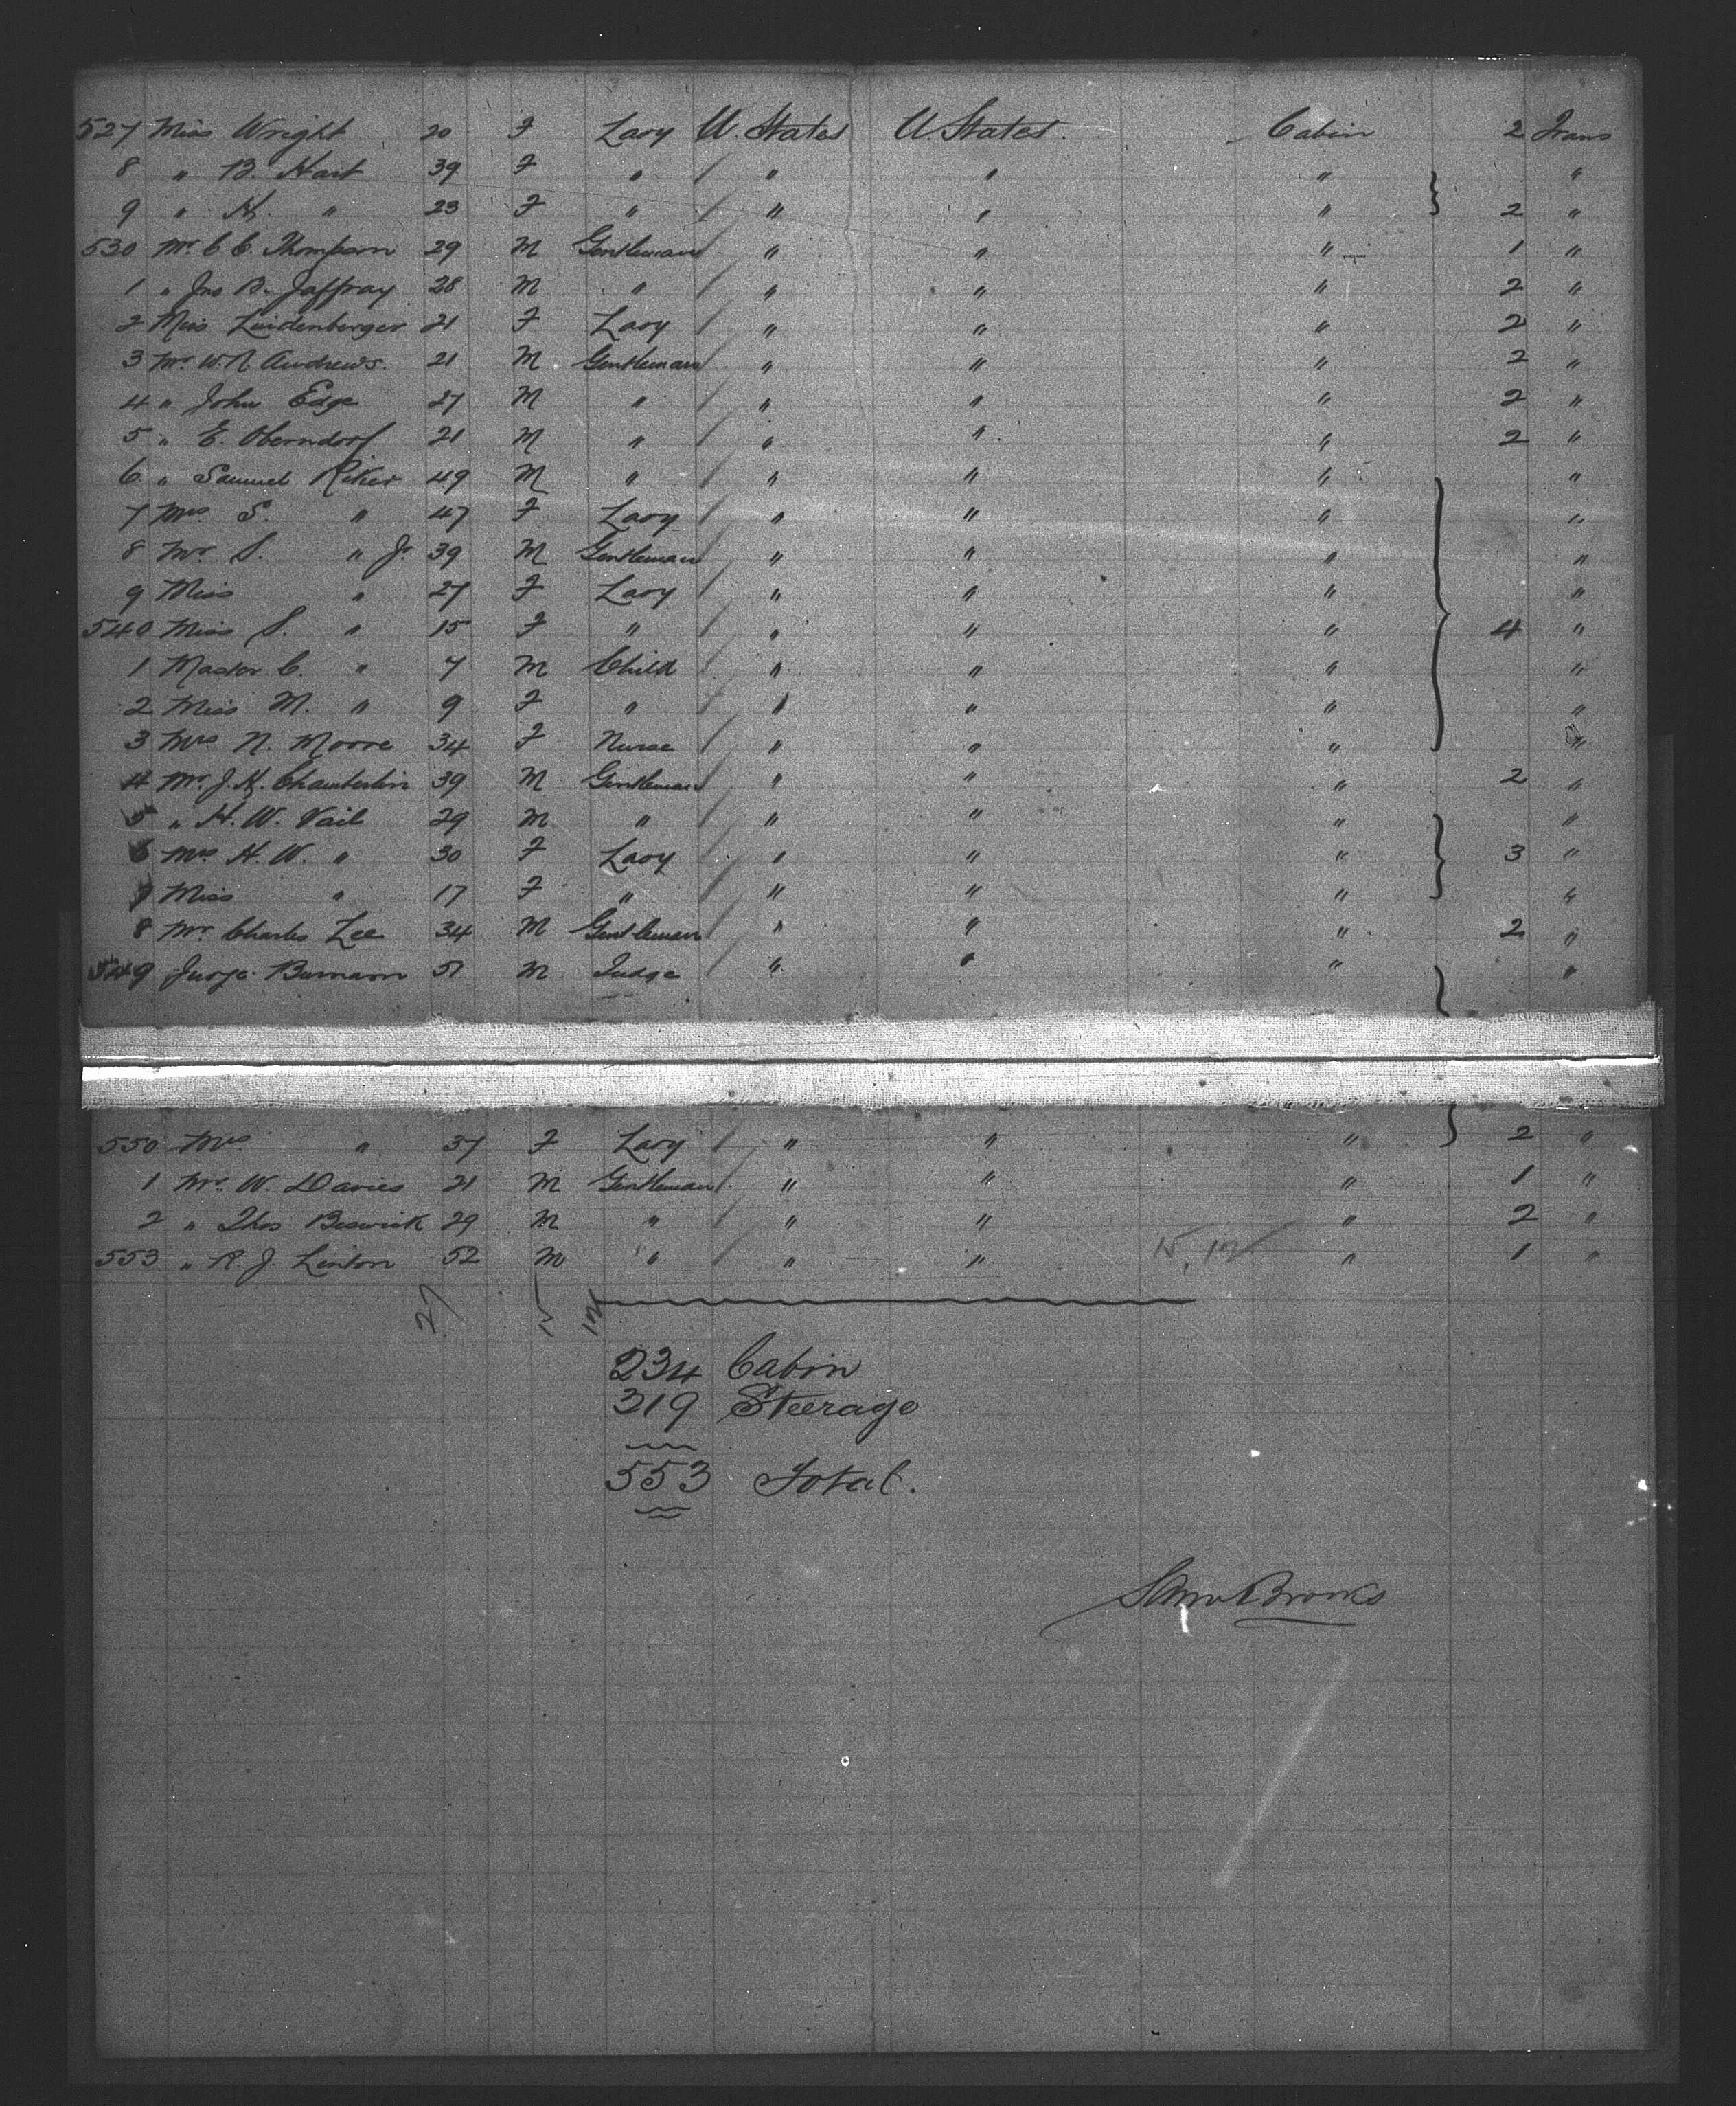 527 Miss Wright 20 F Lady U. States U States. Cabin 2 Trans
8 " B. Hart 39 F " / " " " "
9 " H. " 23 F " / " " " 2 "
530 Mr. C C. Thompson 29 M Gentleman " " " 1 "
1 " Jno B. Jaffray 28 M " / " " " 2 "
2 Miss Luidenberger 21 F Lady / " " " 2 "
3 Mr. W. N. Andrews. 21 M Gentleman " " " 2 "
4 " John Edge 27 M " / " " " 2 "
5 " E. Oberndorf 21 M " / " " " 2 "
6 " Samuel Riker 49 M " / " " " "
7 Mrs S. " 47 F Lady / " " " "
8 Mr. S. " Jr. 39 M Gentleman " " " "
9 Miss " 27 F Lady / " " " "
540 Miss S. " 15 F " / " " " 4 "
1 Master C. " 7 M Child / " " " "
2 Miss M. " 9 F " / " " " "
3 Mrs N. Moore 34 F Nurse / " " " "
4 Mr. J. H. Chamberlin 39 M Gentleman " " " 2 "
5 " H. W. Vail 29 M " / " " " "
6 Mrs H. W. " 30 F Lady / " " " 3 "
7 Miss " 17 F " / " " " "
8 Mr. Charles Lee 34 M Gentleman " " " 2 "
549 Judge Bumann 51 M Judge / " " " "
550 Mrs " 37 F Lady / " " " 2 "
1 Mr. W. Davies 21 M Gentleman " " " 1 "
2 " Thos Beswick 29 M " / " " " 2 "
553 " R. J. Linton 52 M " / " " 15, 12 " 1 "
27 15 12
234 Cabin
319 Steerage
553 Total.
Brooks